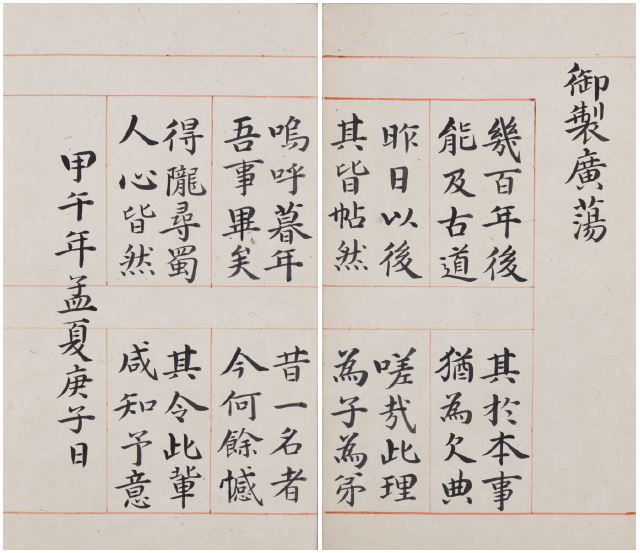 御製廣蕩
幾百年後
能及古道
其於本事
猶為欠典
昨日以後
其皆帖然
嗟哉此理
為子為弟
嗚呼暮年
吾事畢矣
昔一名者
今何餘憾
得隴尋蜀
人心皆然
其令此輩
咸知予意
甲午年孟夏庚子日